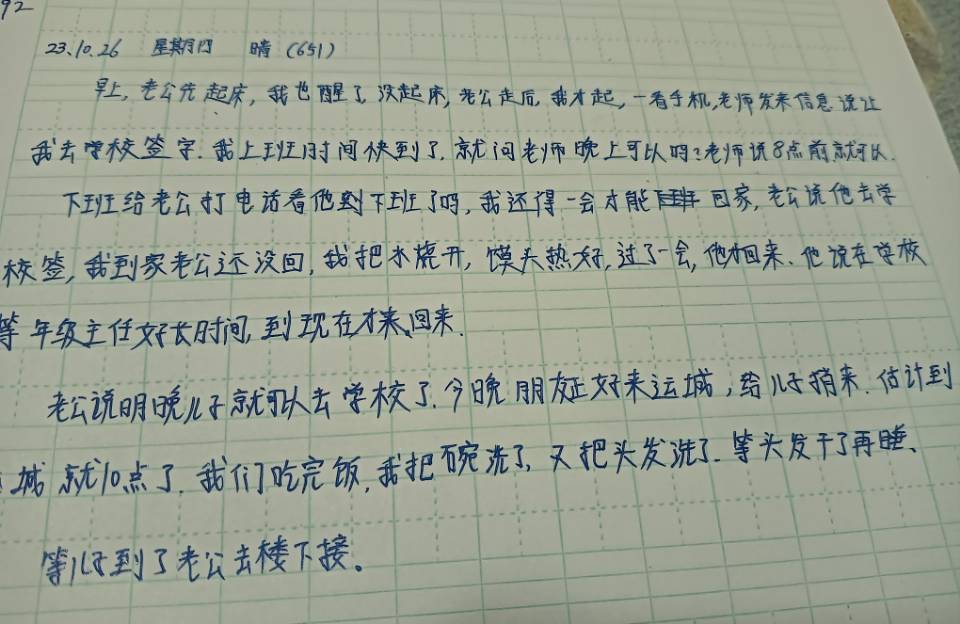 92
23.10.26 星期四 晴（651）
早上,老公先起床,我也醒了,没起床,老公走后,我才起,一看手机,老师发来信息说让
我去学校签字.我上班时间快到了.就问老师晚上可以吗?老师说8点前就可以.
下班给老公打电话看他到下班了吗,我还得一会才能 回家,老公说他去学
校签,我到家老公还没回,我把水烧开,馍头热好,过了一会,他才回来.他说在学校
等年级主任好长时间,到现在才来回来.
老公说明晚儿子就可以去学校了.今晚朋友正好来运城,给儿子捎来.估计到
城就10点了.我们吃完饭,我把碗洗了,又把头发洗了.等头发干了再睡、
等儿子到了老公去楼下接。